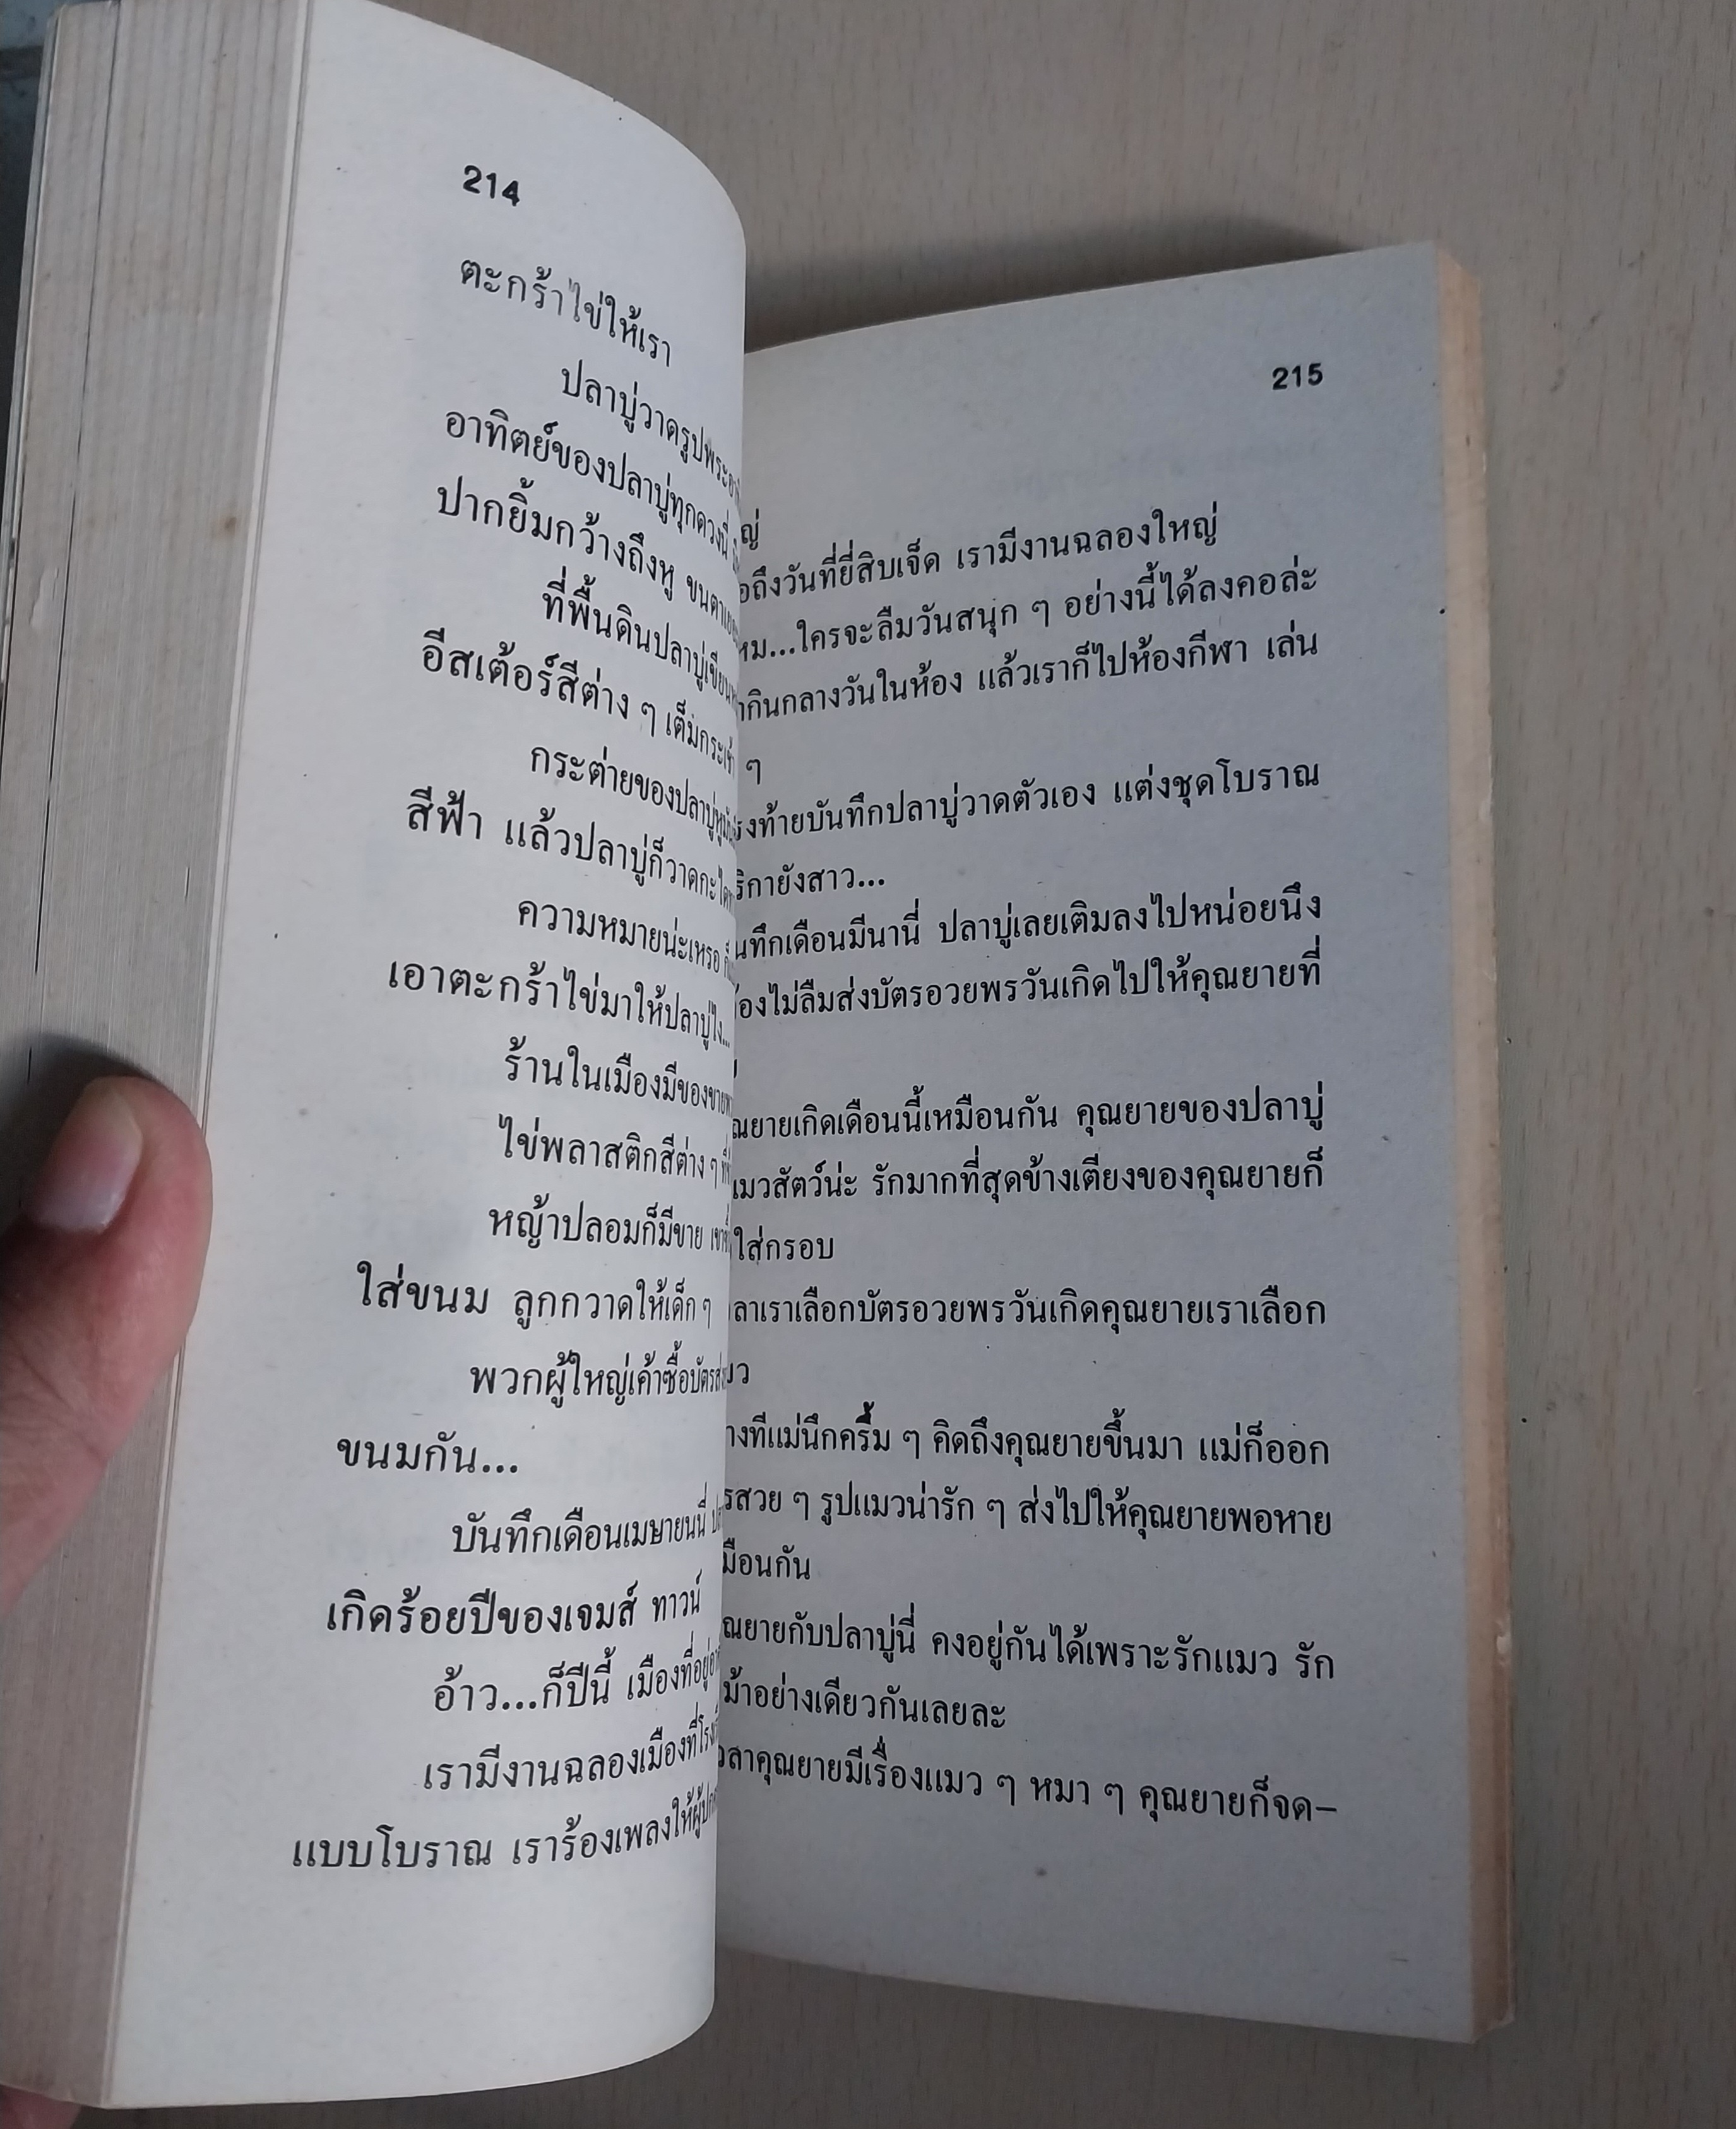 214
ตะกร้าไข่ให้เรา
ปลาบู่วาดรูปพระ
อาทิตย์ของปลาบู่ทุกดวงนี่
ปากยิ้มกว้างถึงหู ขนตา
ที่พื้นดินปลาบู่เขียน
อีสเต้อร์สีต่าง ๆ เต็มกระเช้า
กระต่ายของปลาบู่
สีฟ้า แล้วปลาบู่ก็วาด
ความหมายน่ะเหรอ
เอาตะกร้าไข่มาให้ปลาบู่ไง...
ร้านในเมืองมีของขาย
ไข่พลาสติกสีต่าง ๆ
หญ้าปลอมก็มีขาย
ใส่ขนม ลูกกวาดให้เด็ก ๆ
พวกผู้ใหญ่เค้าซื้อบัตร
ขนมกัน...
บันทึกเดือนเมษายนนี่
เกิดร้อยปีของเจมส์ ทาวน์
อ้าว...ก็ปีนี้ เมืองที่อยู่
เรามีงานฉลองเมืองที่
แบบโบราณ เราร้องเพลงให้
215
ถึงวันที่ยี่สิบเจ็ด เรามีงานฉลองใหญ่
...ใครจะลืมวันสนุก ๆ อย่างนี้ได้ลงคอล่ะ
กินกลางวันในห้อง แล้วเราก็ไปห้องกีฬา เล่น
ๆ
ท้ายบันทึกปลาบู่วาดตัวเอง แต่งชุดโบราณ
ยังสาว...
เดือนมีนานี่ ปลาบู่เลยเติมลงไปหน่อยนึง
ไม่ลืมส่งบัตรอวยพรวันเกิดไปให้คุณยายที่
ยายเกิดเดือนนี้เหมือนกัน คุณยายของปลาบู่
แมวสัตว์น่ะ รักมากที่สุดข้างเตียงของคุณยายก็
ใส่กรอบ
เราเลือกบัตรอวยพรวันเกิดคุณยายเราเลือก
ทีแม่นึกครื้ม ๆ คิดถึงคุณยายขึ้นมา แม่ก็ออก
สวย ๆ รูปแมวน่ารัก ๆ ส่งไปให้คุณยายพอหาย
กัน
ยายกับปลาบู่นี่ คงอยู่กันได้เพราะรักแมว รัก
อย่างเดียวกันเลยละ
คุณยายมีเรื่องแมว ๆ หมา ๆ คุณยายก็จด–